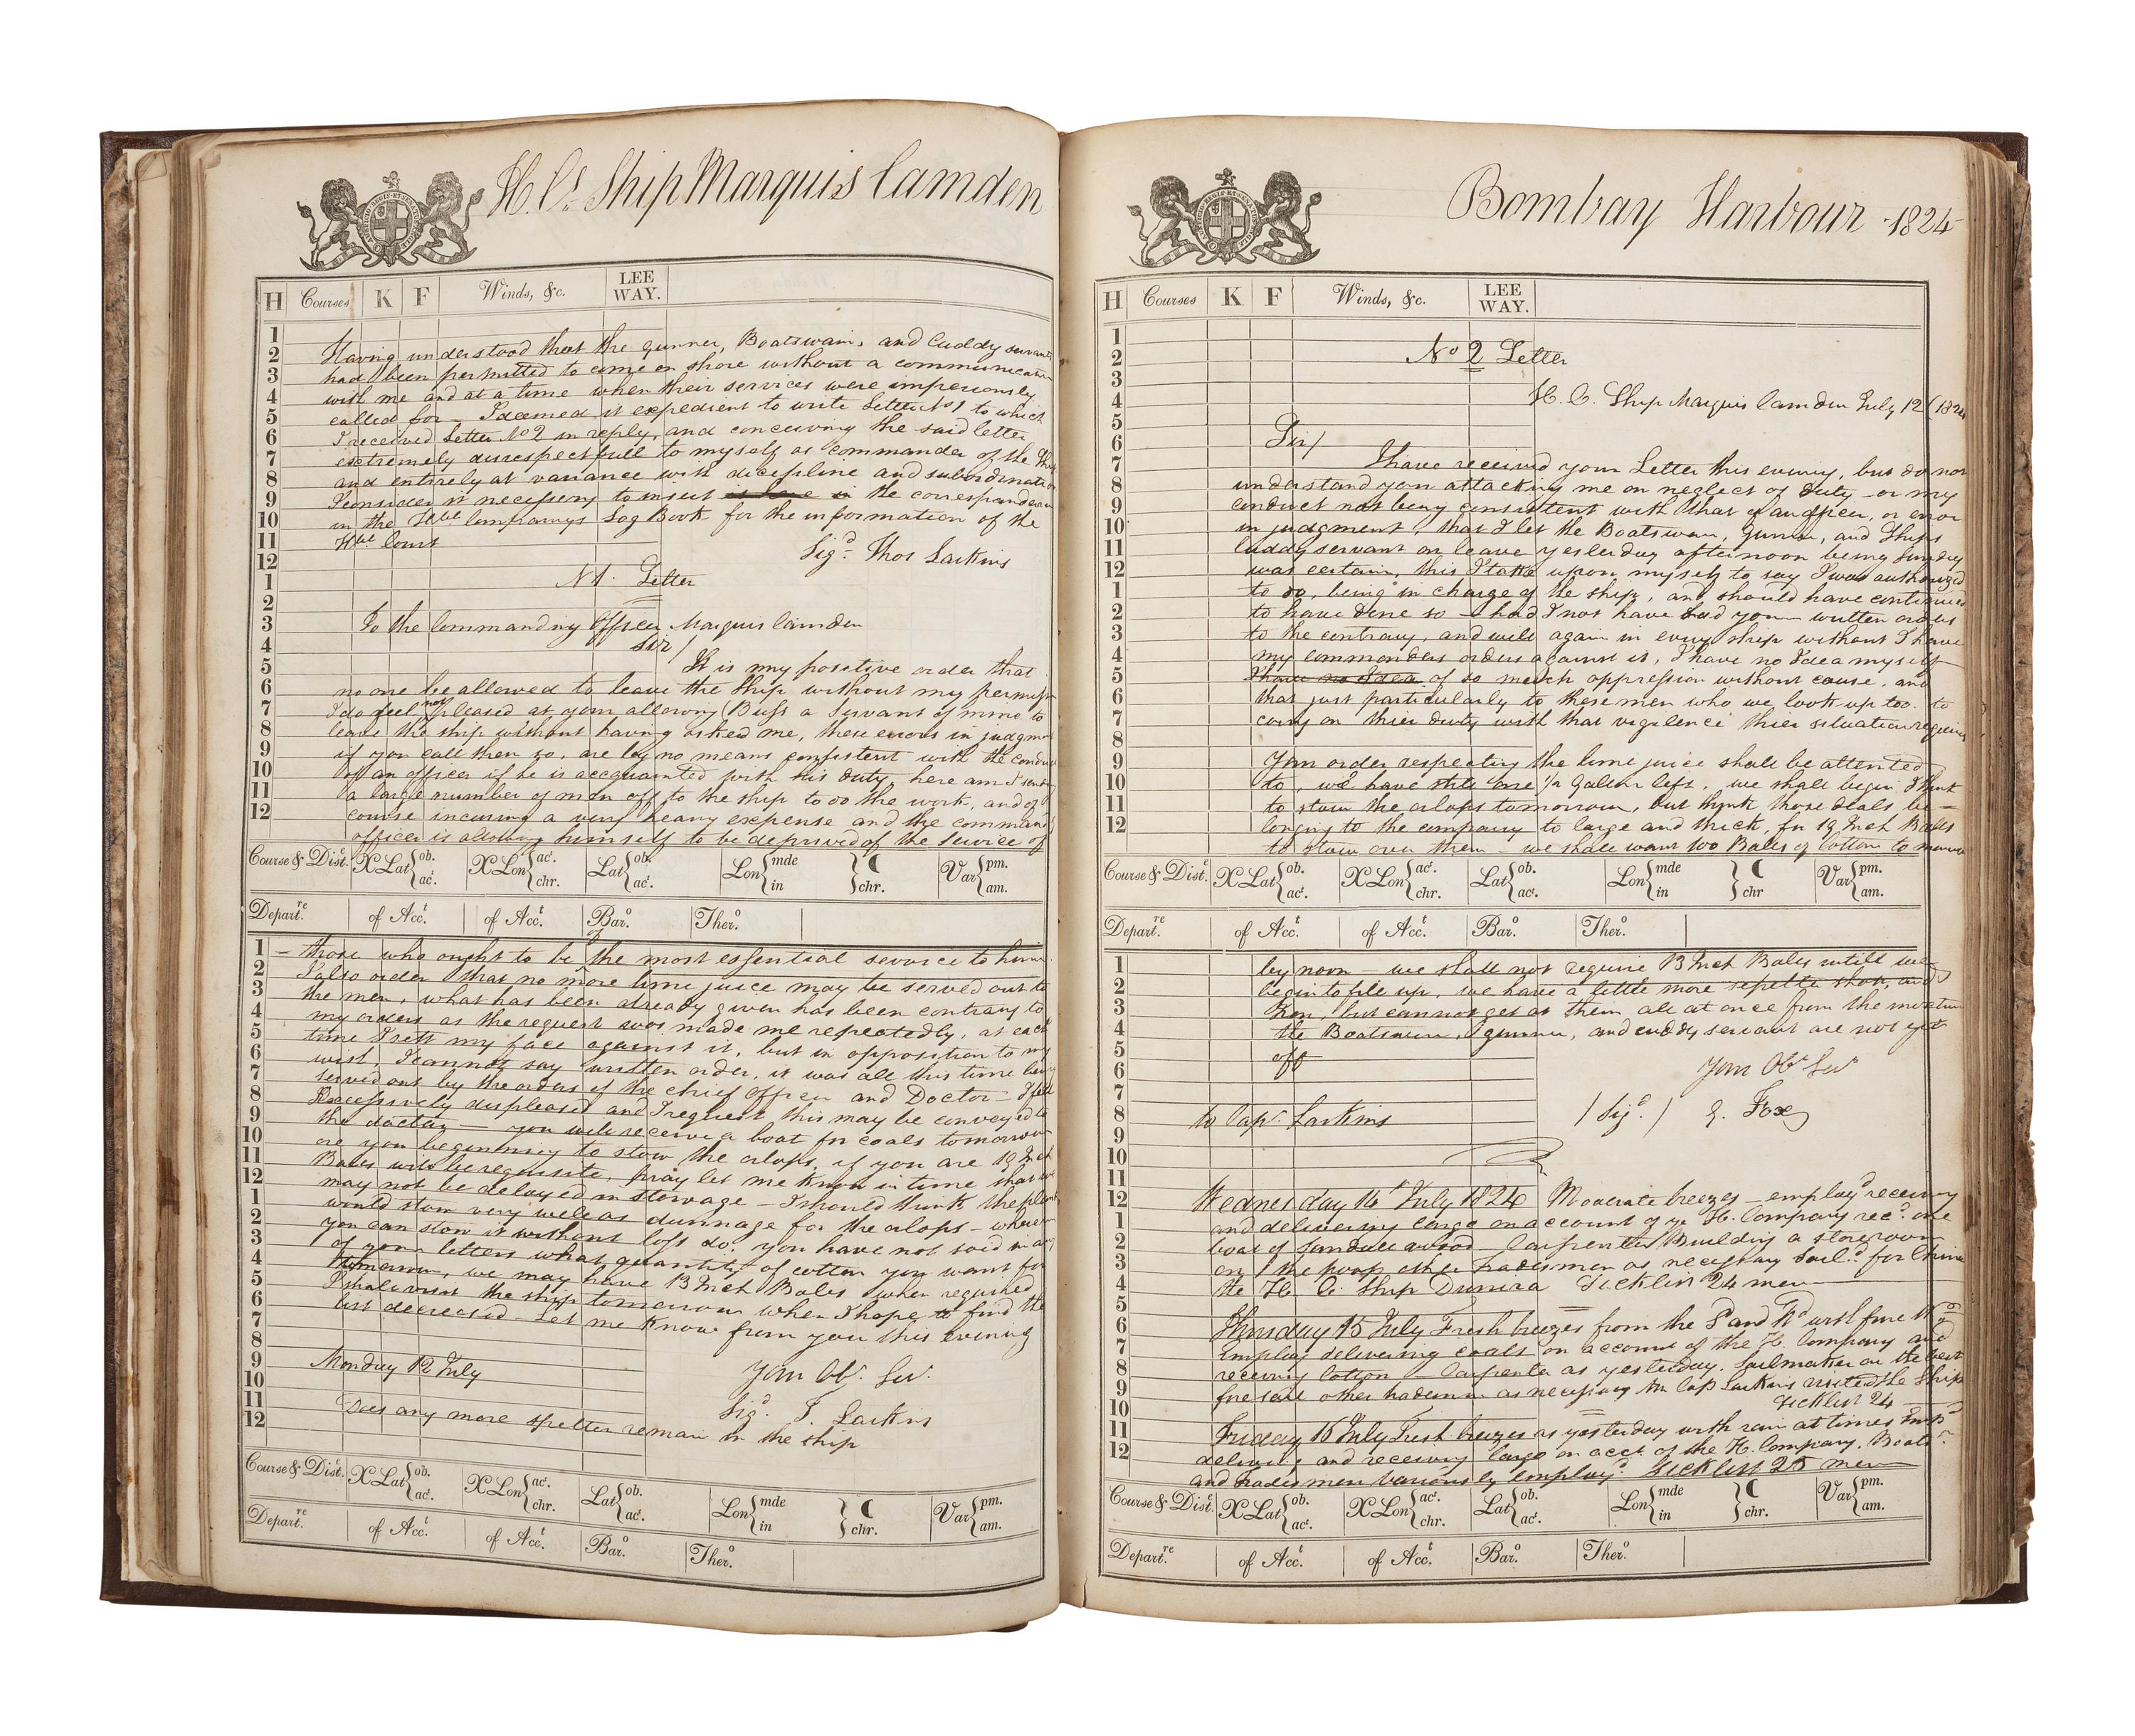 H. Cs. Ship Marquis Camden
H Courses K F Winds, &c. LEE WAY.
1
2 Having understood that the Gunner, Boatswain, and Cuddy servants
3 had been permitted to come on shore without a communication
4 with me and at a time when their services were imperiously
5 called for – I deemed it expedient to write Letter No 1 to which
6 I received Letter No 2 in reply, and conceiving the said letter
7 extremely disrespectfull to myself as commander of the Ship
8 and entirely at variance with discipline and subordination
9 I consider it necessary to insert in the correspondence
10 in the Hble Companys Log Book for the information of the
11 Hble Court
12 Sigd. Thos Larkins
1 N 1. Letter
2
3 To the Commanding Officer Marquis Camden
4 Sir/
5 It is my positive order that
6 no one be allowed to leave the Ship without my permission
7 I do feel not pleased at your allowing (Buss a servant of mine to
8 leave the ship without having asked me, these errors in judgment
9 if you call them so, are by no means consistent with the conduct
10 of an officer if he is accquainted with his duty, here am I sending
11 a large number of men off to the ship to do the work, and of
12 course incuring a very heavy expense and the command
officer is allowing himself to be deprived of the service of
Course & Dist. X Lat {ob. ac. X Lon {ac. chr. Lat {ob. ac. Lon {mde in } ☾ chr. Var {pm. am.
Departre. of Acct. of Acct. Baro. Thero.
1 – those who ought to be of the most essential service to him
2 I also order that no more lime juice may be served out to
3 the men, what has been already given has been contrary to
4 my orders as the request was made me repeatedly, at each
5 time I sett my face against it, but in opposition to my
6 wish, I cannot say written order, it was all this time being
7 served out by the orders of the chief officer and Doctor – I feel
8 Excessively displeased and I request this may be conveyed to
9 the doctor – you will receive a boat for coals tomorrow
10 are you beginning to stow the orlops, if you are 19 Inch
11 Bales will be requisite, pray let me know in time that we
12 may not be delayed in stowage – I should think the plank
1 would stow very well as dunnage for the orlops – wherever
2 you can stow it without loss do. you have not said in any
3 of your letters what quantity of cotton you want for
4 tomorrow, we may have 13 Inch Bales when required
5 I shall visit the ship tomorrow when I hope to find the
6 list decreased – Let me know from you this evening
7
8
9 Monday 12 July Your Obt. Sert.
10
11 Sigd. T. Larkins
12 Does any more spelter remain in the ship
Course & Dist. X Lat {ob. ac. X Lon {ac. chr. Lat {ob. ac. Lon {mde in } ☾ chr. Var {pm. am.
Departre. of Acct. of Acct. Baro. Thero.
Bombay Harbour -1824-
H Courses K F Winds, &c. LEE WAY.
1
2 No 2 Letter
3
4 H. C. Ship Marquis Camden July 12 (1824
5
6 Sir/
7 I have received your Letter this evening, but do not
8 understand you attacking me on neglect of duty – or my
9 conduct not being consistent with that of an officer, or error
10 in judgment, that I let the Boatswain, Gunner, and Ships
11 Cuddy servant on leave yesterday afternoon being Sunday
12 was certain, this I take upon myself to say I was authorized
1 to do, being in charge of the ship, and should have continued
2 to have done so – had I not have had your written orders
3 to the contrary, and will again in every ship without I have
4 my commanders orders against it, I have no Idea myself
5 I have no Idea of so much oppression without cause, and
6 that just particularly to these men who we look up too to
7 carry on thier duty with that vigilence thier situation requires
8
9 Your order respecting the lime juice shall be attented
10 to, we have still one 1/2 Galln left, we shall begin I think
11 to stow the orlops tomorrow, but think those deals be–
12 longing to the company to large and thick, for 19 Inch Bales
to stow over them – we shall want 100 Bales of Cotton to morrow
Course & Dist. X Lat {ob. ac. X Lon {ac. chr. Lat {ob. ac. Lon {mde in } ☾ chr Var {pm. am.
Departre. of Acct. of Acct. Baro. Thero.
1 by noon – we shall not require 13 Inch Bales untill we
2 begin to fill up. we have a little more shot, and
3 Iron, but cannot get at them all at once from the
4 the Boatswain, gunner, and cuddy servant are not yet
5 off
6 Your Obt Sert
7
8 to Capt. Larkins /Sigd./ G. Fox
9
10
11
12 Wednesday 14 July 1824 Moderate breezes – employd receiving
1 and delivering cargo on account of ye H. Company recd. one
2 boat of Sandall wood – Carpenters Building a storeroom
3 on the poop other tradesmen as necessary Saild. for China
4 the H. C. Ship Dunira Sick list 24 men
5
6 Thursday 15 July Fresh breezes from the S and Wd with fine Wr
7 employ delivering coals on account of the H. Company and
8 receiving Cotton – Carpenter as yesterday. Sailmaker on the best
9 fore sail other tradesmen as necessary Capt Larkins visited the Ship
10 Sick list 24
11 Friday 16 July Fresh breezes as yesterday with rain at times Empd
12 delivering and receiving Cargo on acct. of the H. Company. Boatsn.
and tradesmen variously employd. Sick list 25 men
Course & Dist. X Lat {ob. ac. X Lon {ac. chr. Lat {ob. ac. Lon {mde in } ☾ chr. Var {pm. am.
Departre. of Acct. of Acct. Baro. Thero.